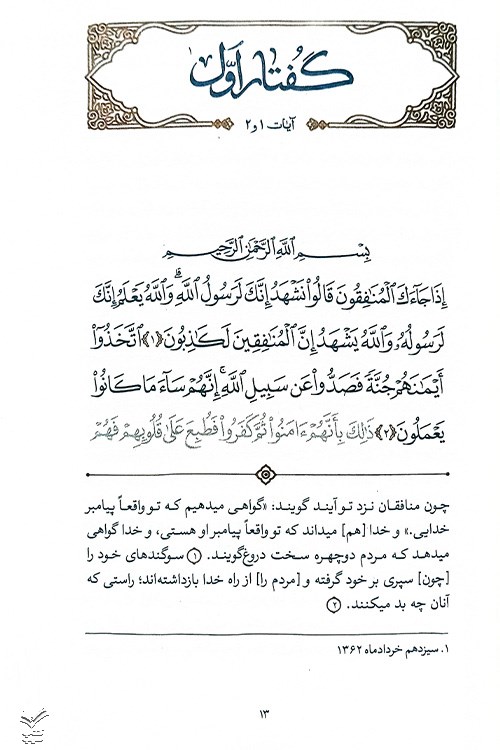 گفتار اوّل
آیات ۱ و ۲
بِسْمِ اللَّهِ الرَّحْمَٰنِ الرَّحِيمِ
إِذَا جَاءَكَ الْمُنَافِقُونَ قَالُوا نَشْهَدُ إِنَّكَ لَرَسُولُ اللَّهِ ۗ وَاللَّهُ يَعْلَمُ إِنَّكَ
لَرَسُولُهُ وَاللَّهُ يَشْهَدُ إِنَّ الْمُنَافِقِينَ لَكَاذِبُونَ ﴿١﴾ اتَّخَذُوا
أَيْمَانَهُمْ جُنَّةً فَصَدُّوا عَن سَبِيلِ اللَّهِ ۚ إِنَّهُمْ سَاءَ مَا كَانُوا
يَعْمَلُونَ ﴿٢﴾ ذَٰلِكَ بِأَنَّهُمْ ءَامَنُوا ثُمَّ كَفَرُوا فَطُبِعَ عَلَىٰ قُلُوبِهِمْ فَهُمْ
چون منافقان نزد تو آیند گویند: «گواهی میدهیم که تو واقعاً پیامبر
خدایی.» و خدا [هم] میداند که تو واقعاً پیامبر او هستی، و خدا گواهی
میدهد که مردم دوچهره سخت دروغ‌گویند. ① سوگندهای خود را
[چون] سپری بر خود گرفته و [مردم را] از راه خدا بازداشته‌اند؛ راستی که
آنان چه بد میکنند. ②
۱. سیزدهم خردادماه ۱۳۶۲
۱۳